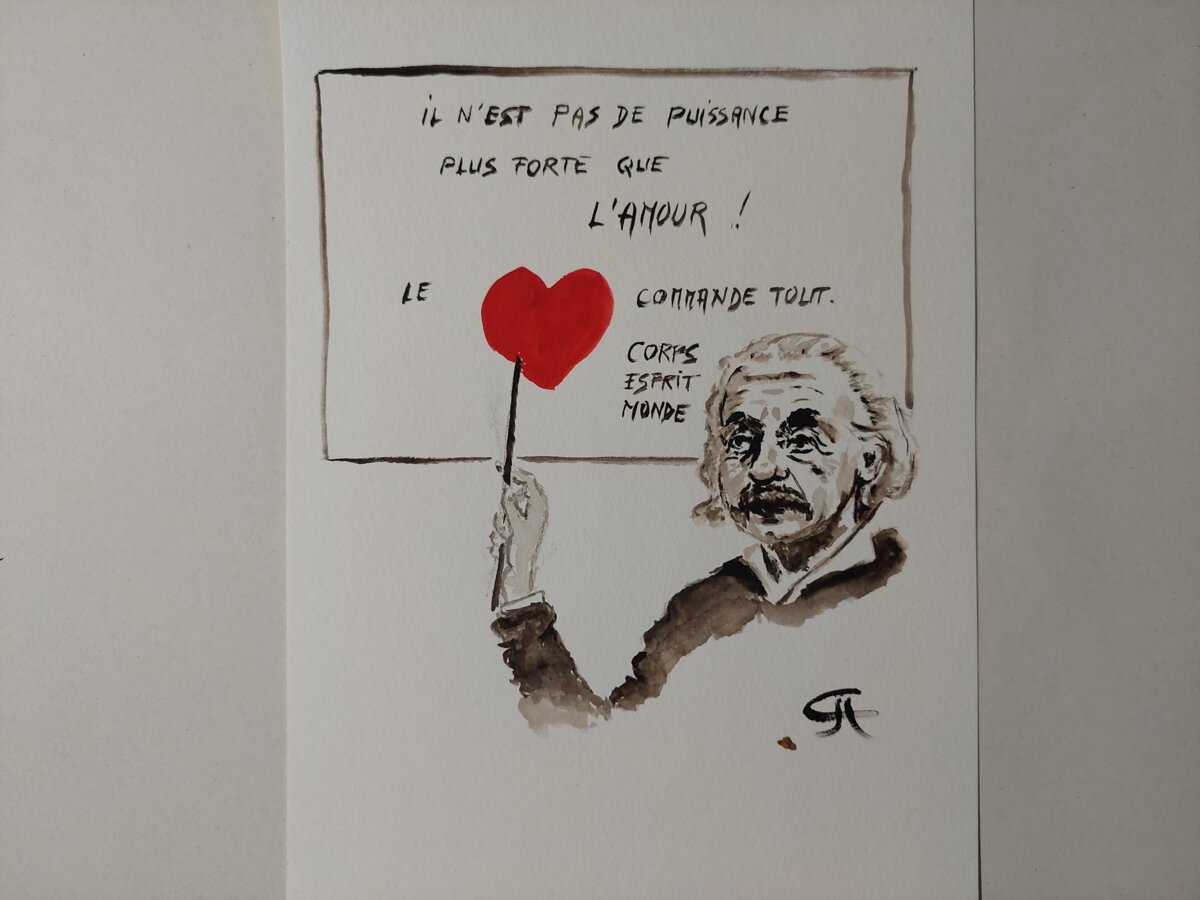 iL N'EST PAS DE PUiSSANCE
PLUS FORTE QUE
L'AMOUR !
LE COMMANDE TOUT.
CORPS
ESPRIT
MONDE